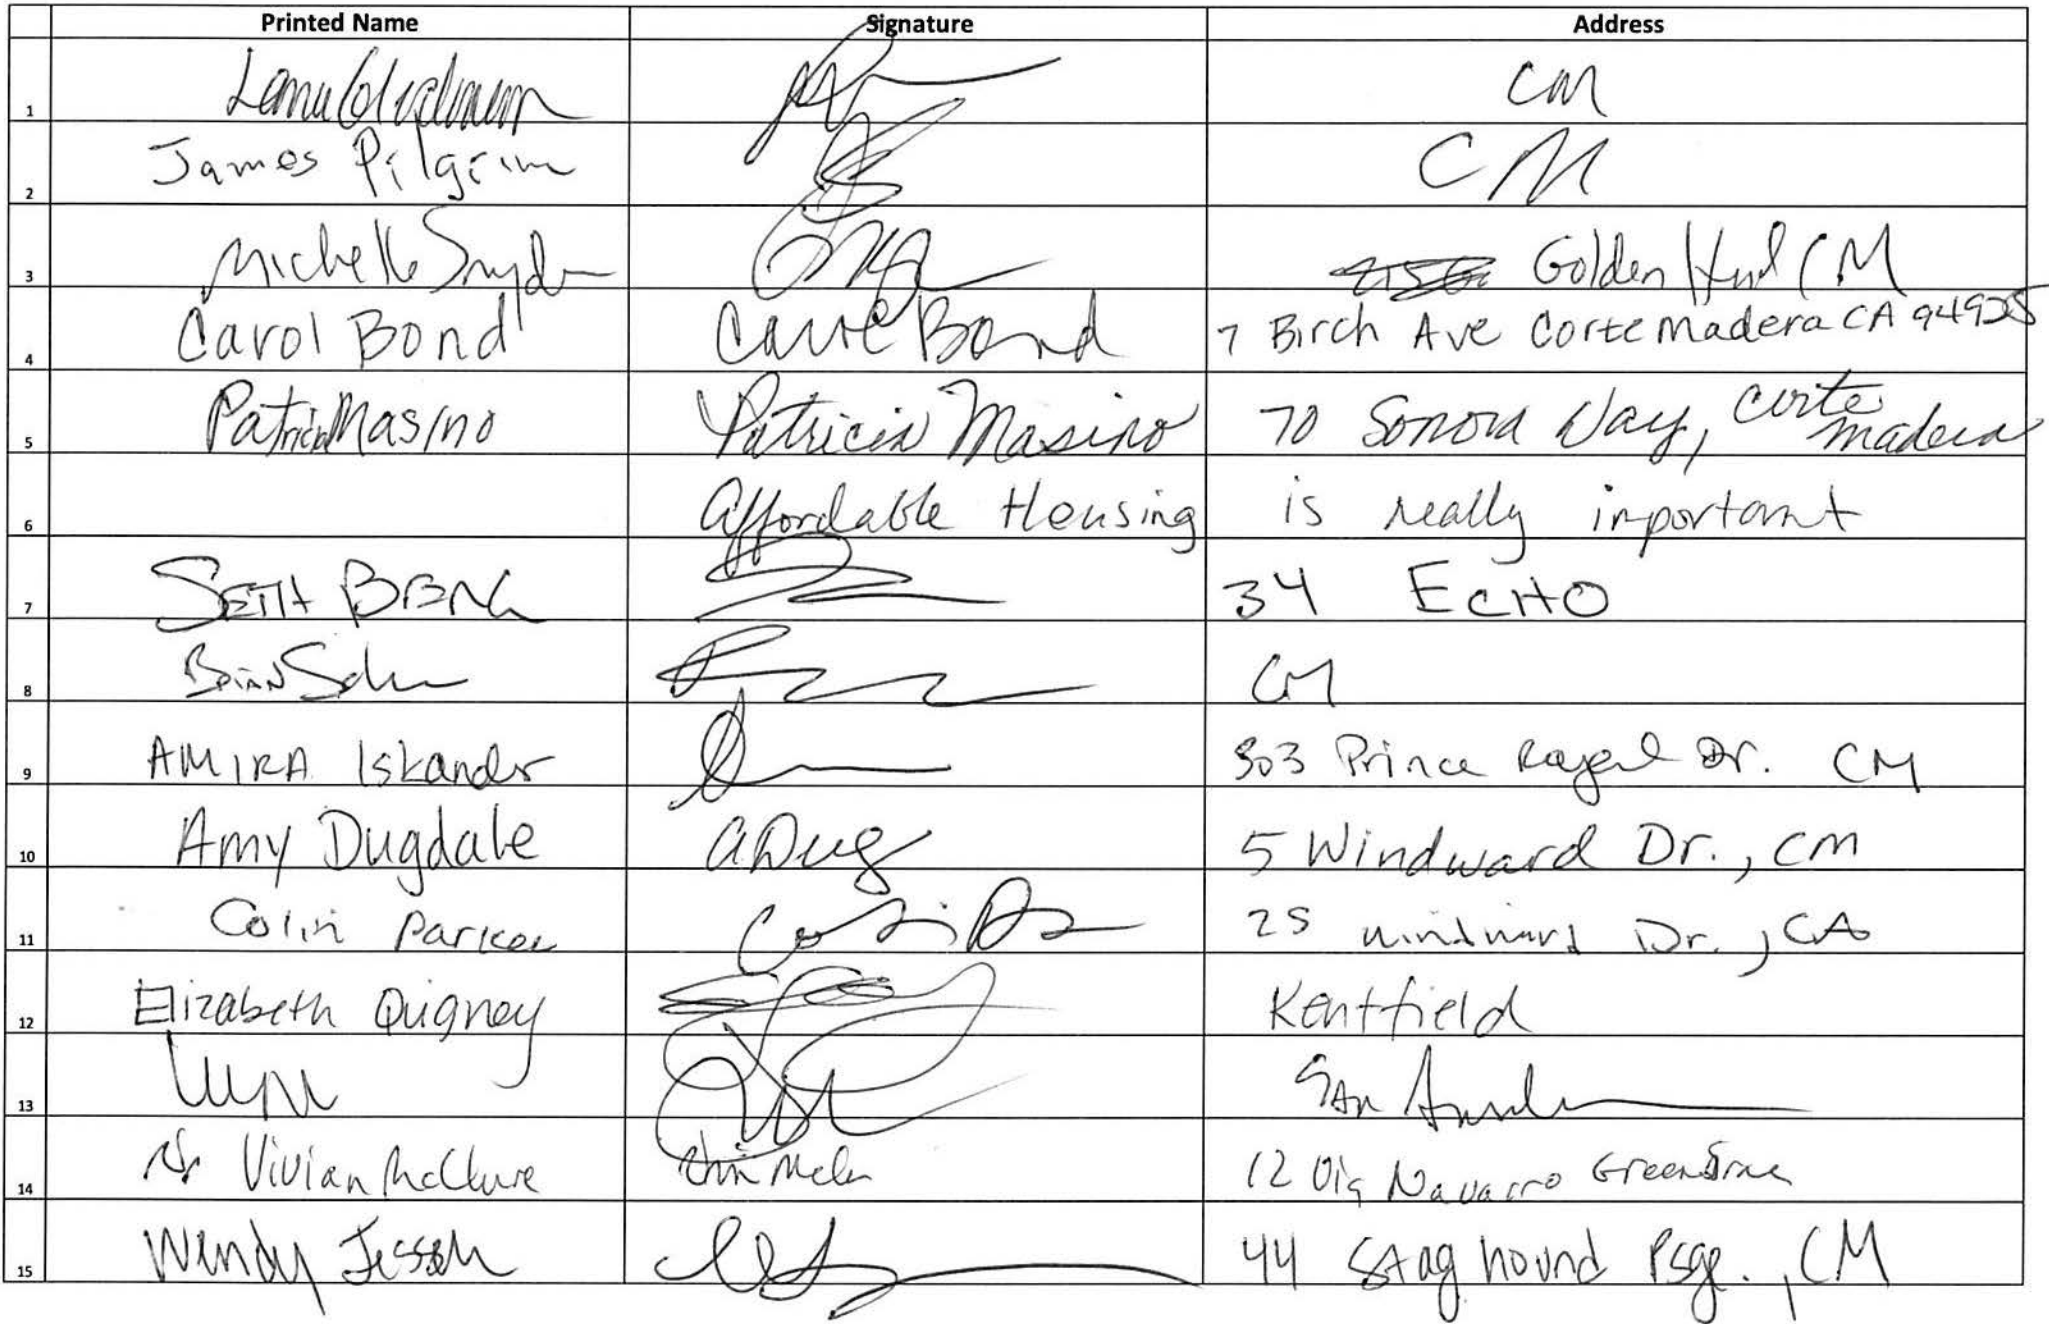 Printed Name Signature Address
1 CM
2 James Pilgrim CM
3 Michelle Snyder Golden Hind CM
4 Carol Bond Carol Bond 7 Birch Ave Corte Madera CA 94925
5 Patricia Masino Patricia Masino 70 Sonora Way, Corte Madera
6 Affordable Housing is really important
7 SETH 34 ECHO
8 BRIAN CM
9 AMIRA Iskander 303 Prince Royal Dr. CM
10 Amy Dugdale ADug 5 Windward Dr., CM
11 Colin Parker 25 Windward Dr., CA
12 Elizabeth Quigney Kentfield
13 San
14 Vivian McClure 12 Via Navarro Greenbrae
15 Wendy 44 Stag hound Psge., CM